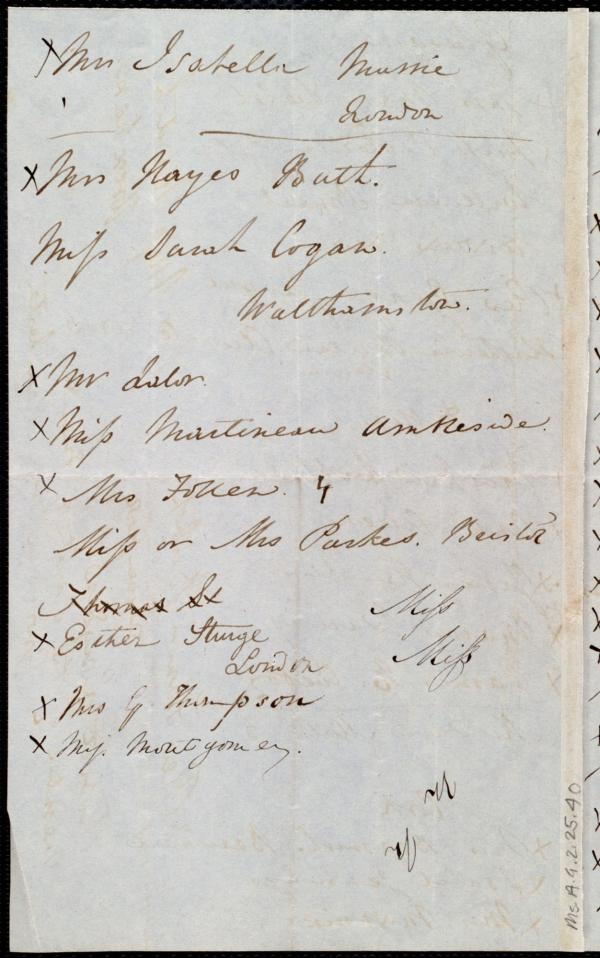 X Mrs Isabella Massie
London
X Mrs Hayes Bath.
Miss Sarah Cogan.
Walthamstow.
X Mr Lalor.
X Miss Martineau Ambleside.
X Mrs Follen. 4
Miss or Mrs Parkes. Bristol
Thomas St Miss
X Esther Sturge Miss
London
X Mrs G Thompson
X Miss Montgomery.
Ms.A.9.2.25.40